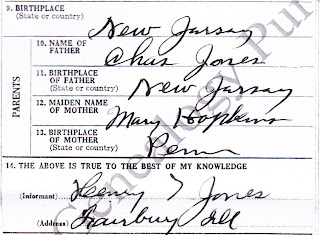 9. BIRTHPLACE
(State or country) New Jarsay
PARENTS
10. NAME OF
FATHER Chas Jones
11. BIRTHPLACE
OF FATHER
(State or country) New Jarsay
12. MAIDEN NAME
OF MOTHER Mary Hopkins
13. BIRTHPLACE
OF MOTHER
(State or country) Penn
14. THE ABOVE IS TRUE TO THE BEST OF MY KNOWLEDGE
(Informant) Henry T Jones
(Address) Fairbury Ill
Genealogy